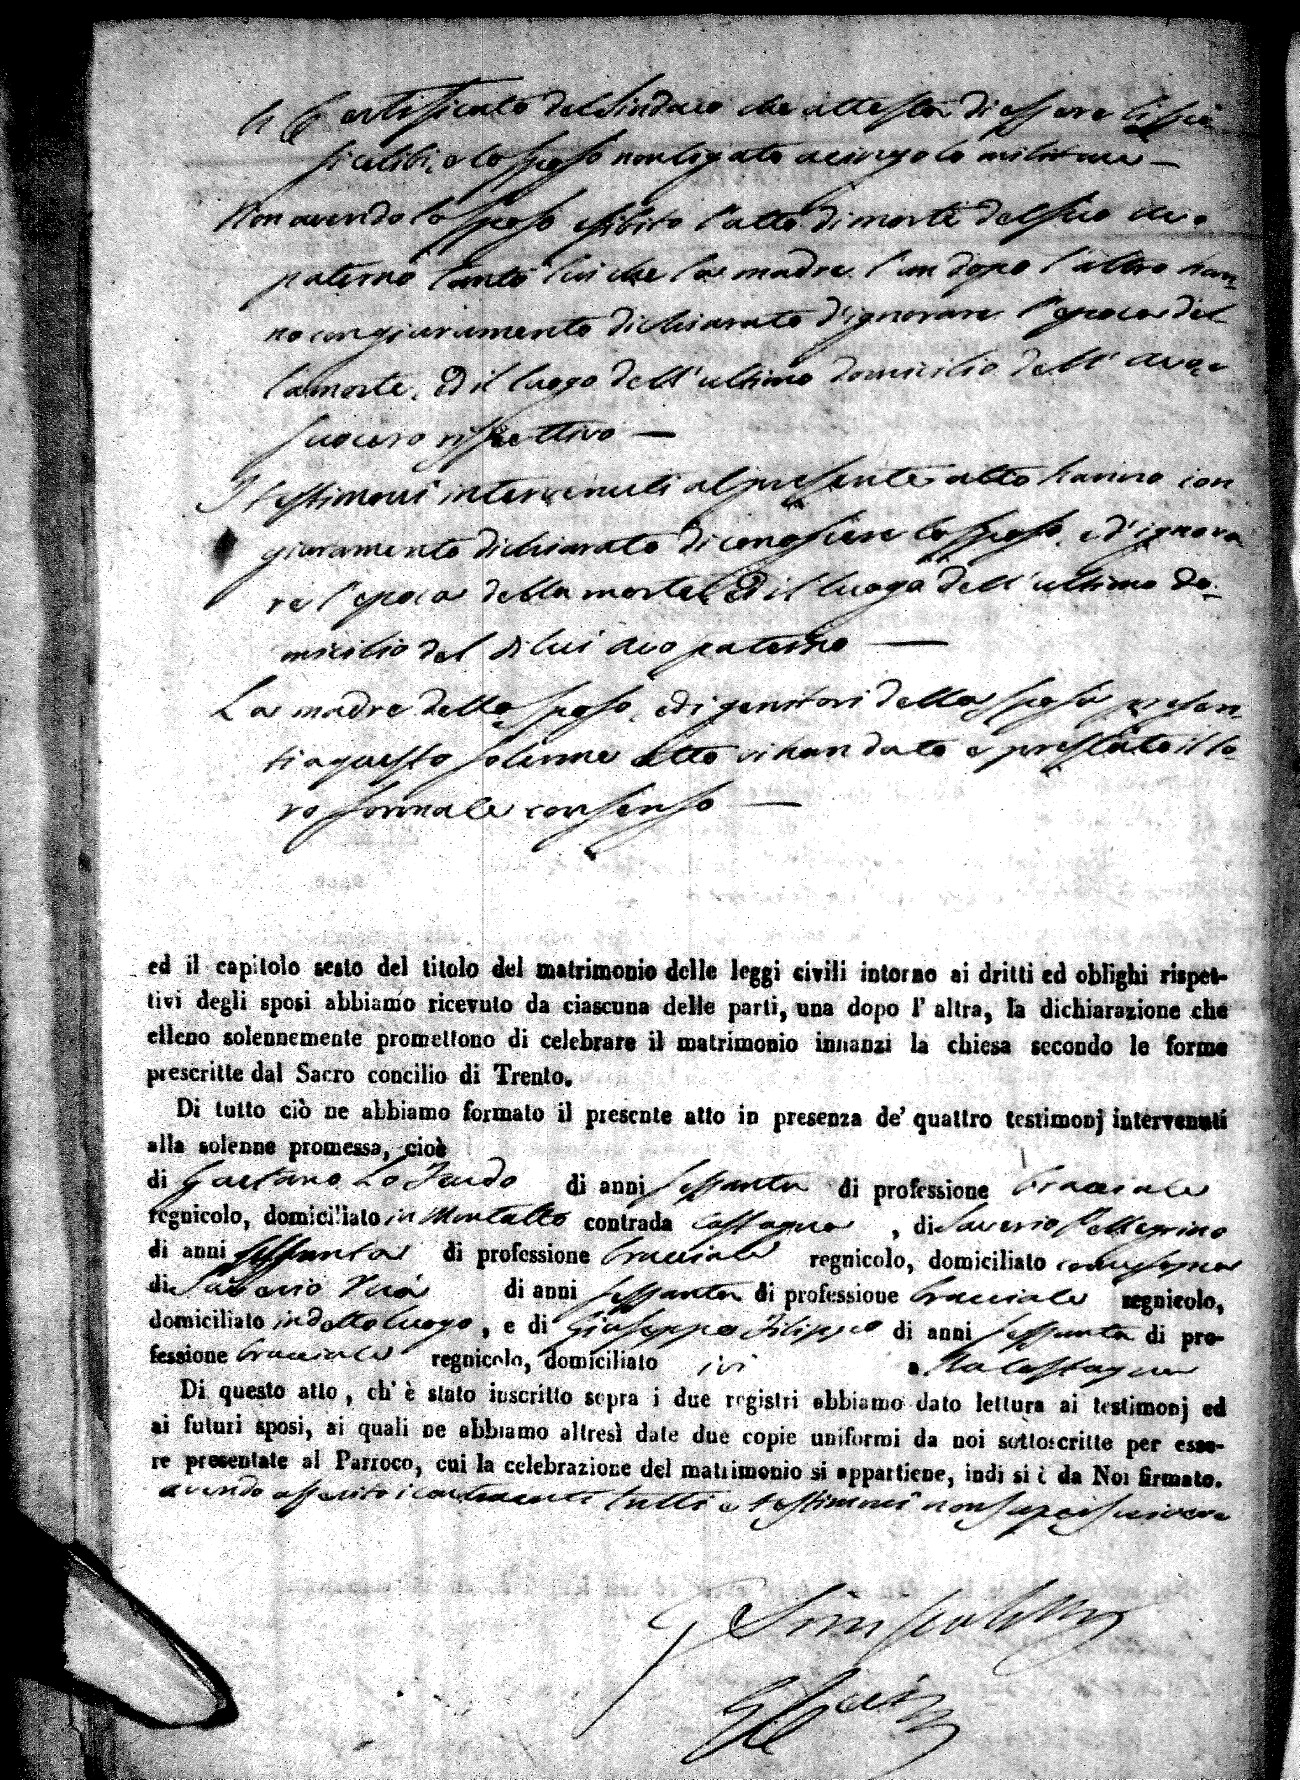 Certificato del Sindaco che attesta di essere
celibi, e lo sposo non ligato a cingolo militare —
Non avendo lo sposo esibito l'atto di morte del suo avo
paterno tanto lui che la madre l'un dopo l'altro han¬
no con giuramento dichiarato d'ignorare l'epoca del¬
la morte, ed il luogo dell'ultimo domicilio dell' avo, e
suocero rispettivo —
I testimoni intervenuti al presente atto hanno con
giuramento dichiarato di conoscere lo sposo, e d'ignora
re l'epoca della morte, ed il luogo dell'ultimo do¬
micilio del di lui avo paterno —
La madre dello sposo, ed i genitori della sposa presen¬
ti a questo solenne atto vi han dato e prestato il lo¬
ro formale consenso —
ed il capitolo sesto del titolo del matrimonio delle leggi civili intorno ai dritti ed oblighi rispet-
tivi degli sposi abbiamo ricevuto da ciascuna delle parti, una dopo l' altra, la dichiarazione che
elleno solennemente promettono di celebrare il matrimonio innanzi la chiesa secondo le forme
prescritte dal Sacro concilio di Trento.
Di tutto ciò ne abbiamo formato il presente atto in presenza de' quattro testimonj intervenuti
alla solenne promessa, cioè
di Gaetano Lo Feudo di anni sessanta di professione bracciale
regnicolo, domiciliato in Montalto contrada castagna , di Saverio Pellegrino
di anni sessanta di professione bracciale regnicolo, domiciliato
di Saverio di anni sessanta di professione bracciale regnicolo,
domiciliato in detto luogo, e di Giuseppe Filippo di anni sessanta di pro-
fessione bracciale regnicolo, domiciliato ivi castagna
Di questo atto, ch' è stato inscritto sopra i due registri abbiamo dato lettura ai testimonj ed
ai futuri sposi, ai quali ne abbiamo altresì date due copie uniformi da noi sottoscritte per esse-
re presentate al Parroco, cui la celebrazione del matrimonio si appartiene, indi si è da Noi firmato.
avendo asserito i contraenti tutti e testimoni non saper scrivere